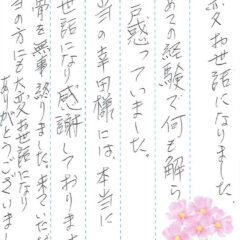 大変お世話になり
めての経験で何も解ら
戸惑っていました。
当の幸田様には、本当に
お世話になり感謝しております
骨を無事終りました。来ていただ
当の方にも大変お世話になり
ありがとうございまし